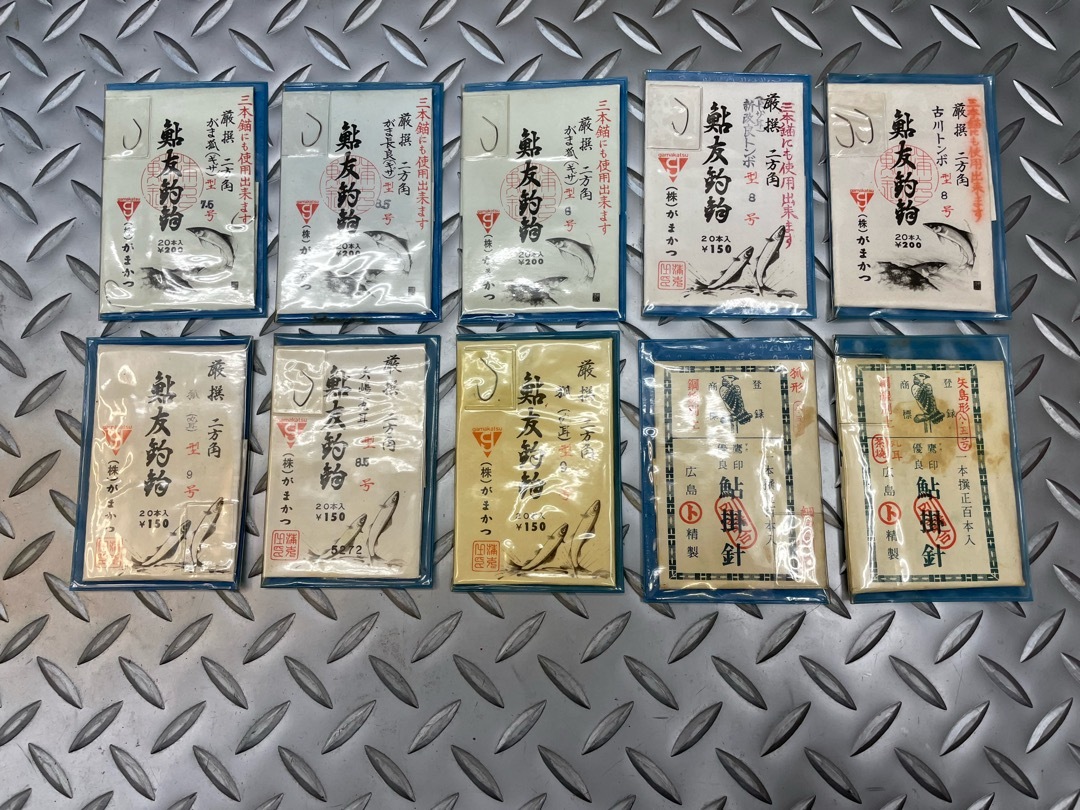 三本錨にも使用出来ます
厳撰 二方角
がま狐(ギザ)型 7.5号
鮎友釣鉤
20本入
¥200
(株)がまかつ
三本錨にも使用出来ます
厳撰 二方角
がま長良(ギザ)型 8.5号
鮎友釣鉤
20本入
¥200
(株)がまかつ
三本錨にも使用出来ます
厳撰 二方角
がま狐(ギザ)型 8号
鮎友釣鉤
20本入
¥200
(株)がまかつ
三本錨にも使用出来ます
厳撰 二方角
新改良トンボ型 8号
鮎友釣鉤
gamakatsu
20本入
¥150
(株)がまかつ
三本錨にも使用出来ます
厳撰 二方角
古川トンボ型 8号
鮎友釣鉤
20本入
¥200
(株)がまかつ
厳撰 二方角
狐 型 9号
鮎友釣鉤
gamakatsu
20本入
¥150
(株)がまかつ
厳撰 二方角
型 8.5号
鮎友釣鉤
gamakatsu
20本入
¥150
(株)がまかつ
5272
厳撰 二方角
狐 型 9号
鮎友釣鉤
gamakatsu
20本入
¥150
(株)がまかつ
狐形
登録
商標
鷹印
優良
鮎掛針
広島
精製
矢島形
登録
商標
一本撰正百本入
鷹印
優良
鮎掛針
広島
精製